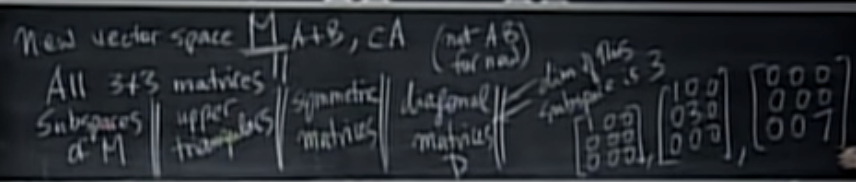 New vector space M A+B, cA (not AB for now)
All 3x3 matrices !!
Subspaces of M || upper triangulars || symmetric matrices || diagonal matrices D ||
dim of this subspace is 3
[1 0 0
0 0 0
0 0 0], [1 0 0
0 3 0
0 0 0], [0 0 0
0 0 0
0 0 7]